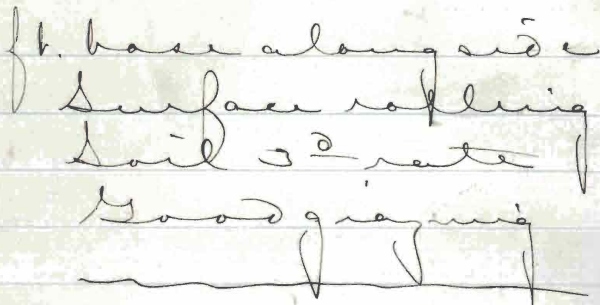 ft. base alongside
Surface rolling
Soil 3d rate
Good grazing